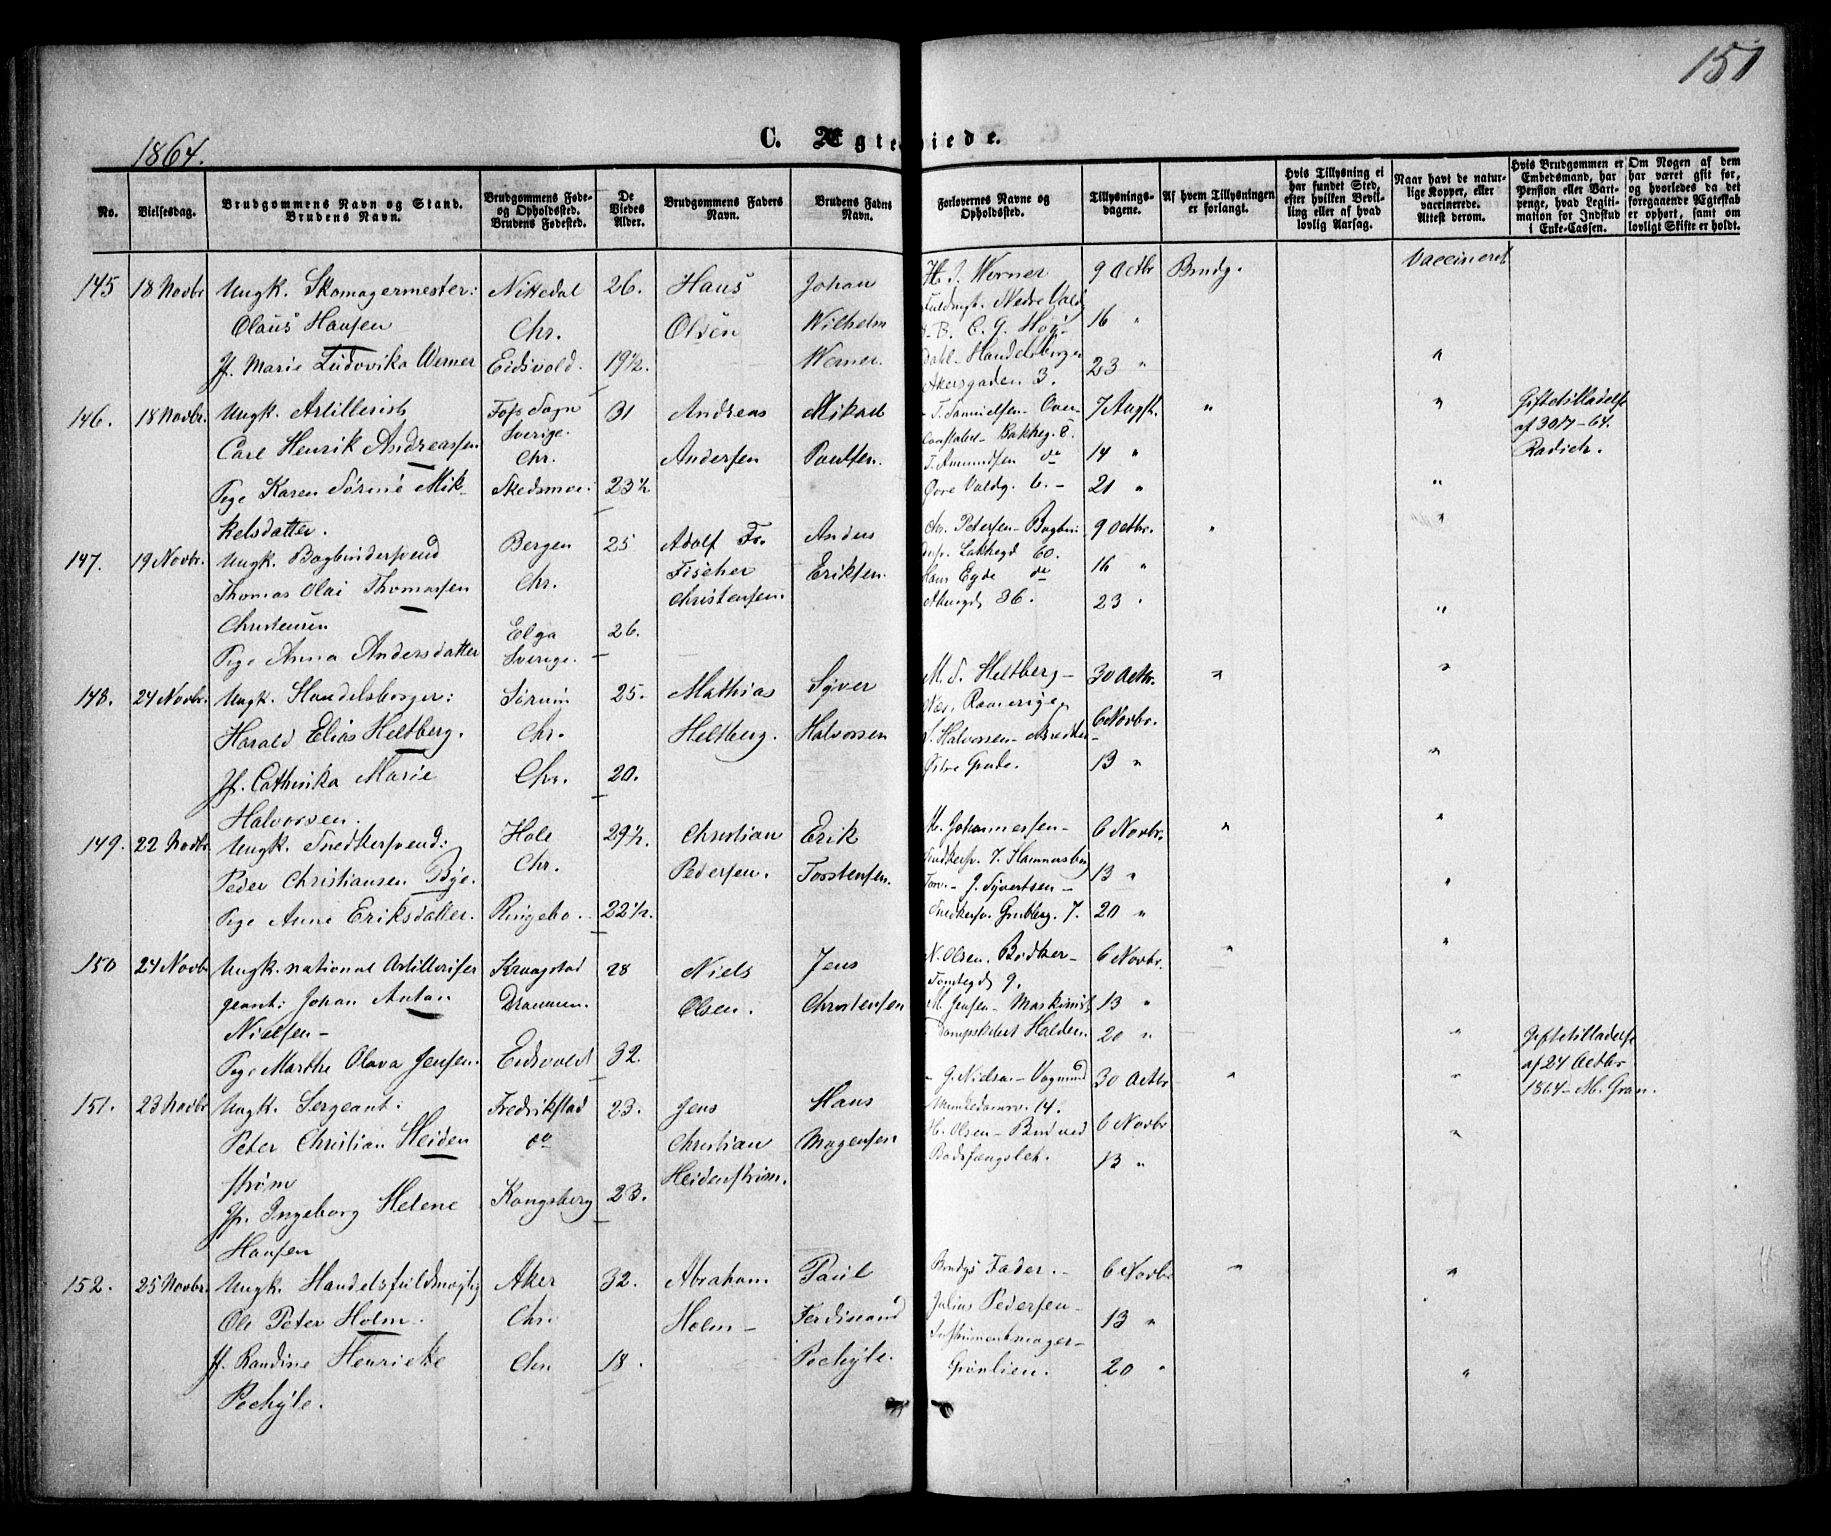 151
1864.
C. Ægteviede.
No.
Vielsesdag.
Brudgommens Navn og Stand.
Brudens Navn.
Brudgommens Føde-
og Opholdssted.
Brudens Fødested.
De
Viedes
Alder.
Brudgommens Faders
Navn.
Brudens Faders
Navn.
Forlovernes Navne og
Opholdssted.
Tillysnings-
dagene.
Af hvem Tillysningen
er forlangt.
Hvis Tillysning ei
har fundet Sted,
efter hvilken Bevil-
ling eller af hvad
lovlig Aarsag.
Naar havt de natur-
lige Kopper, eller
vaccinerede.
Attest derom.
Hvis Brudgommen er
Embedsmand, har
Pension eller Vart-
penge, hvad Legiti-
mation for Indskud
i Enke-Cassen.
Om Nogen af dem
har været gift før,
og hvorledes da det
foregaaende Ægteskab
er ophørt, samt om
lovligt Skifte er holdt.
145 18 Novbr Ungk. Skomagermester: Nittedal 26. Hans Johan H. J. Werner 9 Octbr Brudg. Vaccineret
Olaus Hansen Chr. Olsen Wilhelm Fuldmgt. Nedre Vold 16 "
Jf. Marie Ludovika Werner Eidsvold. 19½. Werner. Handelsborger 23 " "
Akersgaden 3.
146. 18 Novbr. Ungk. Artillerist Sogn 31 Andreas Mikael 7 Augst. " " Giftetilladelse
Sverige. af 30/7-64.
Carl Henrik Andreassen Chr. Andersen Poulsen. Bakkeg. 8. 14 " Radich.
T. Amundsen do
Pige Karen Sørine Mik- Skedsmo. 23½ Øvre Voldg. 6. - 21 " "
kelsdatter.
147. 19 Novbr. Ungk. Bogbindersvend Bergen 25 Adolf Fr. Anders Chr. Petersen - Bogbin 9 Octbr. " "
Thomas Olai Thomassen Chr. Fischer Eriksen Lakkegd 60. 16 "
Christensen. Hans Egde do
Christensen Elga 26. 36. 23 " "
Pige Anna Andersdatter Sverige.
148. 24 Novbr. Ungk. Handelsborger: Sørum 25. Mathias Syver M. S. Heltberg - 30 Octbr. " "
Harald Elias Heltberg. Chr. Heltberg. Halvorsen Næs, Romerige 6 Novbr.
Jf. Cathinka Marie Chr. 20. Halvorsen Østre Gade. 13 " "
Halvorsen.
149. 22 Novbr Ungk. Snedkersvend: Hole 29½. Christian Erik Johannessen - 6 Novbr. " "
Peder Christiansen Bye. Chr. Pedersen. Torstensen. Snedkersv. 7. Hammersborg 13 "
Torv. - J. Syvertsen - "
Pige Anne Eriksdatter. Ringebo. 22½. Snedkersv. Grubbeg. 7. 20 "
150 24 Novbr Ungk. national Artilleriser Kraagstad 28 Niels Jens N. Olsen, Bødker - 6 Novbr. " "
geant: Johan Anton Drammen. Olsen. Christensen Tomtegd 9.
M. Jensen - Maskinist 13 "
Nielsen - Dampskibet Halden 20 " "
Pige Marthe Olava Jensen. Eidsvold 32. Giftetilladelse
af 24 Octbr
1864 - M. Gran.
151. 23 Novbr Ungk. Sergeant: Fredrikstad 23. Jens Hans J. Nielsen - Vognmd 30 Octbr " "
Peter Christian Heiden do Christian Mogensen Munkedamsv. 14. 6 Novbr
H. Olsen - Bud ved
strøm Heidenstrøm. Bodsfængslet. 13 " "
Jf. Ingeborg Helene Kongsberg 23.
Hansen
152. 25 Novbr. Ungk. Handelsfuldmægtig Aker 32. Abraham Paul Brudgs Fader. - 6 Novbr " "
Ole Peter Holm. Chr. Holm - Ferdinand Julius Pedersen - 13 "
Instrumentmager -
Jf. Randine Henriette Chr. 18. Pechyle. Grønlien. 20 " "
Pechyle.